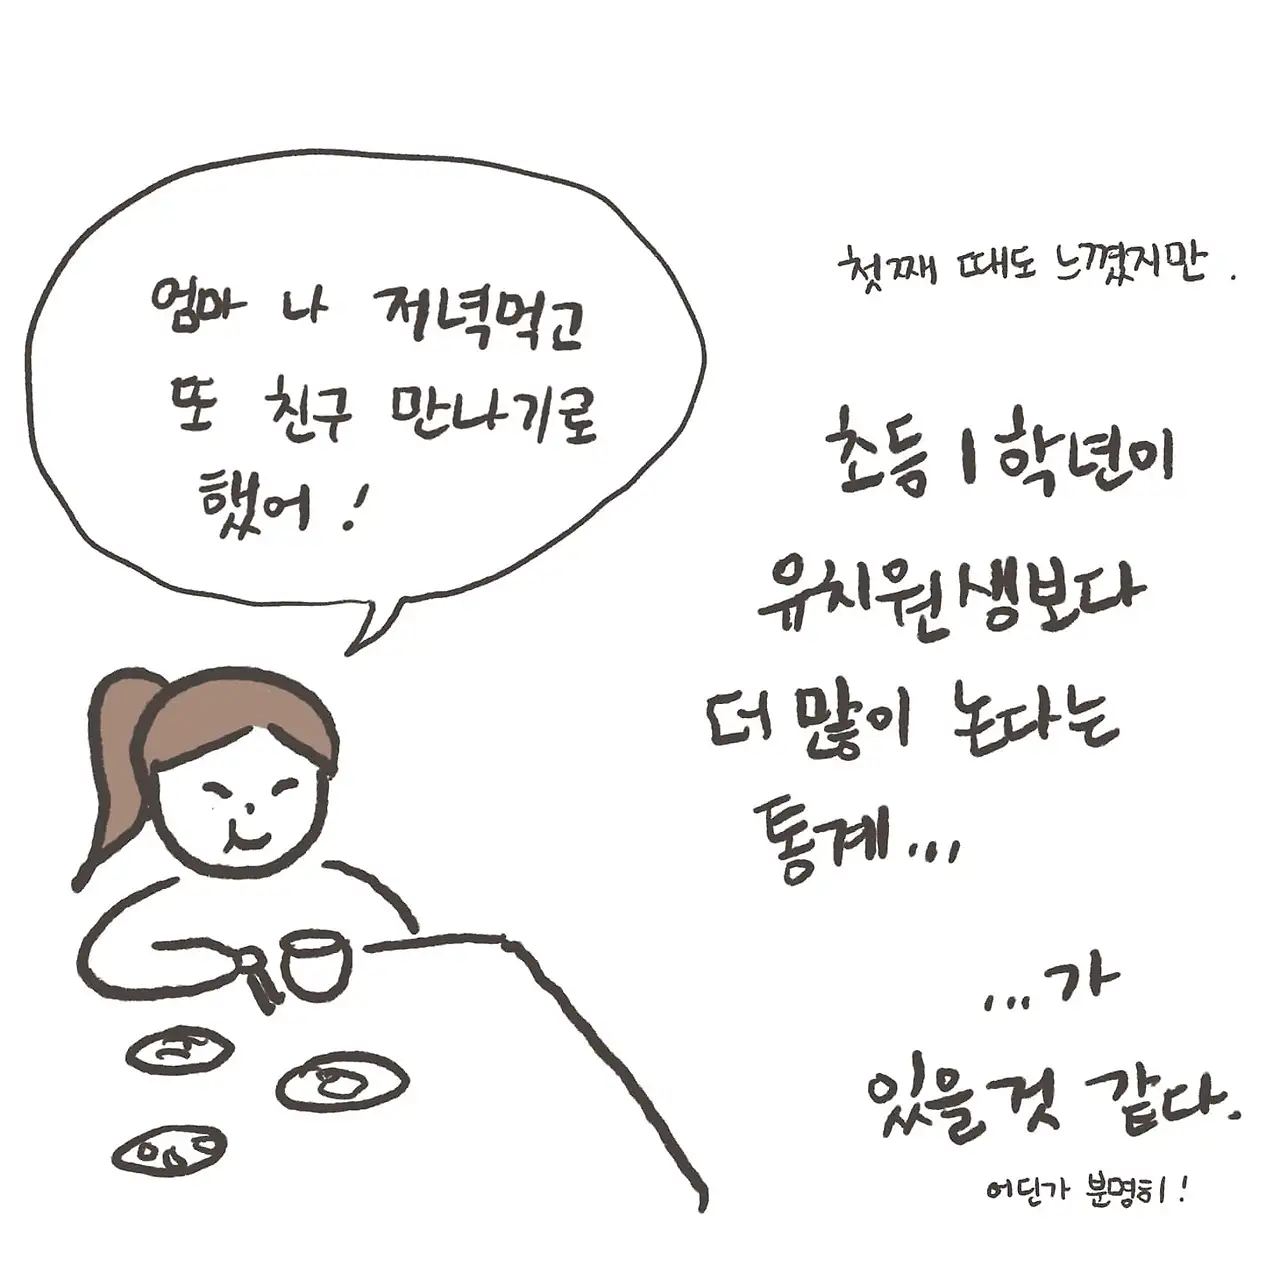 엄마 나 저녁먹고
또 친구 만나기로
했어 !
첫째 때도 느꼈지만 .
초등 1학년이
유치원생보다
더 많이 논다는
통계...
...가
있을것 같다.
어딘가 분명히 !